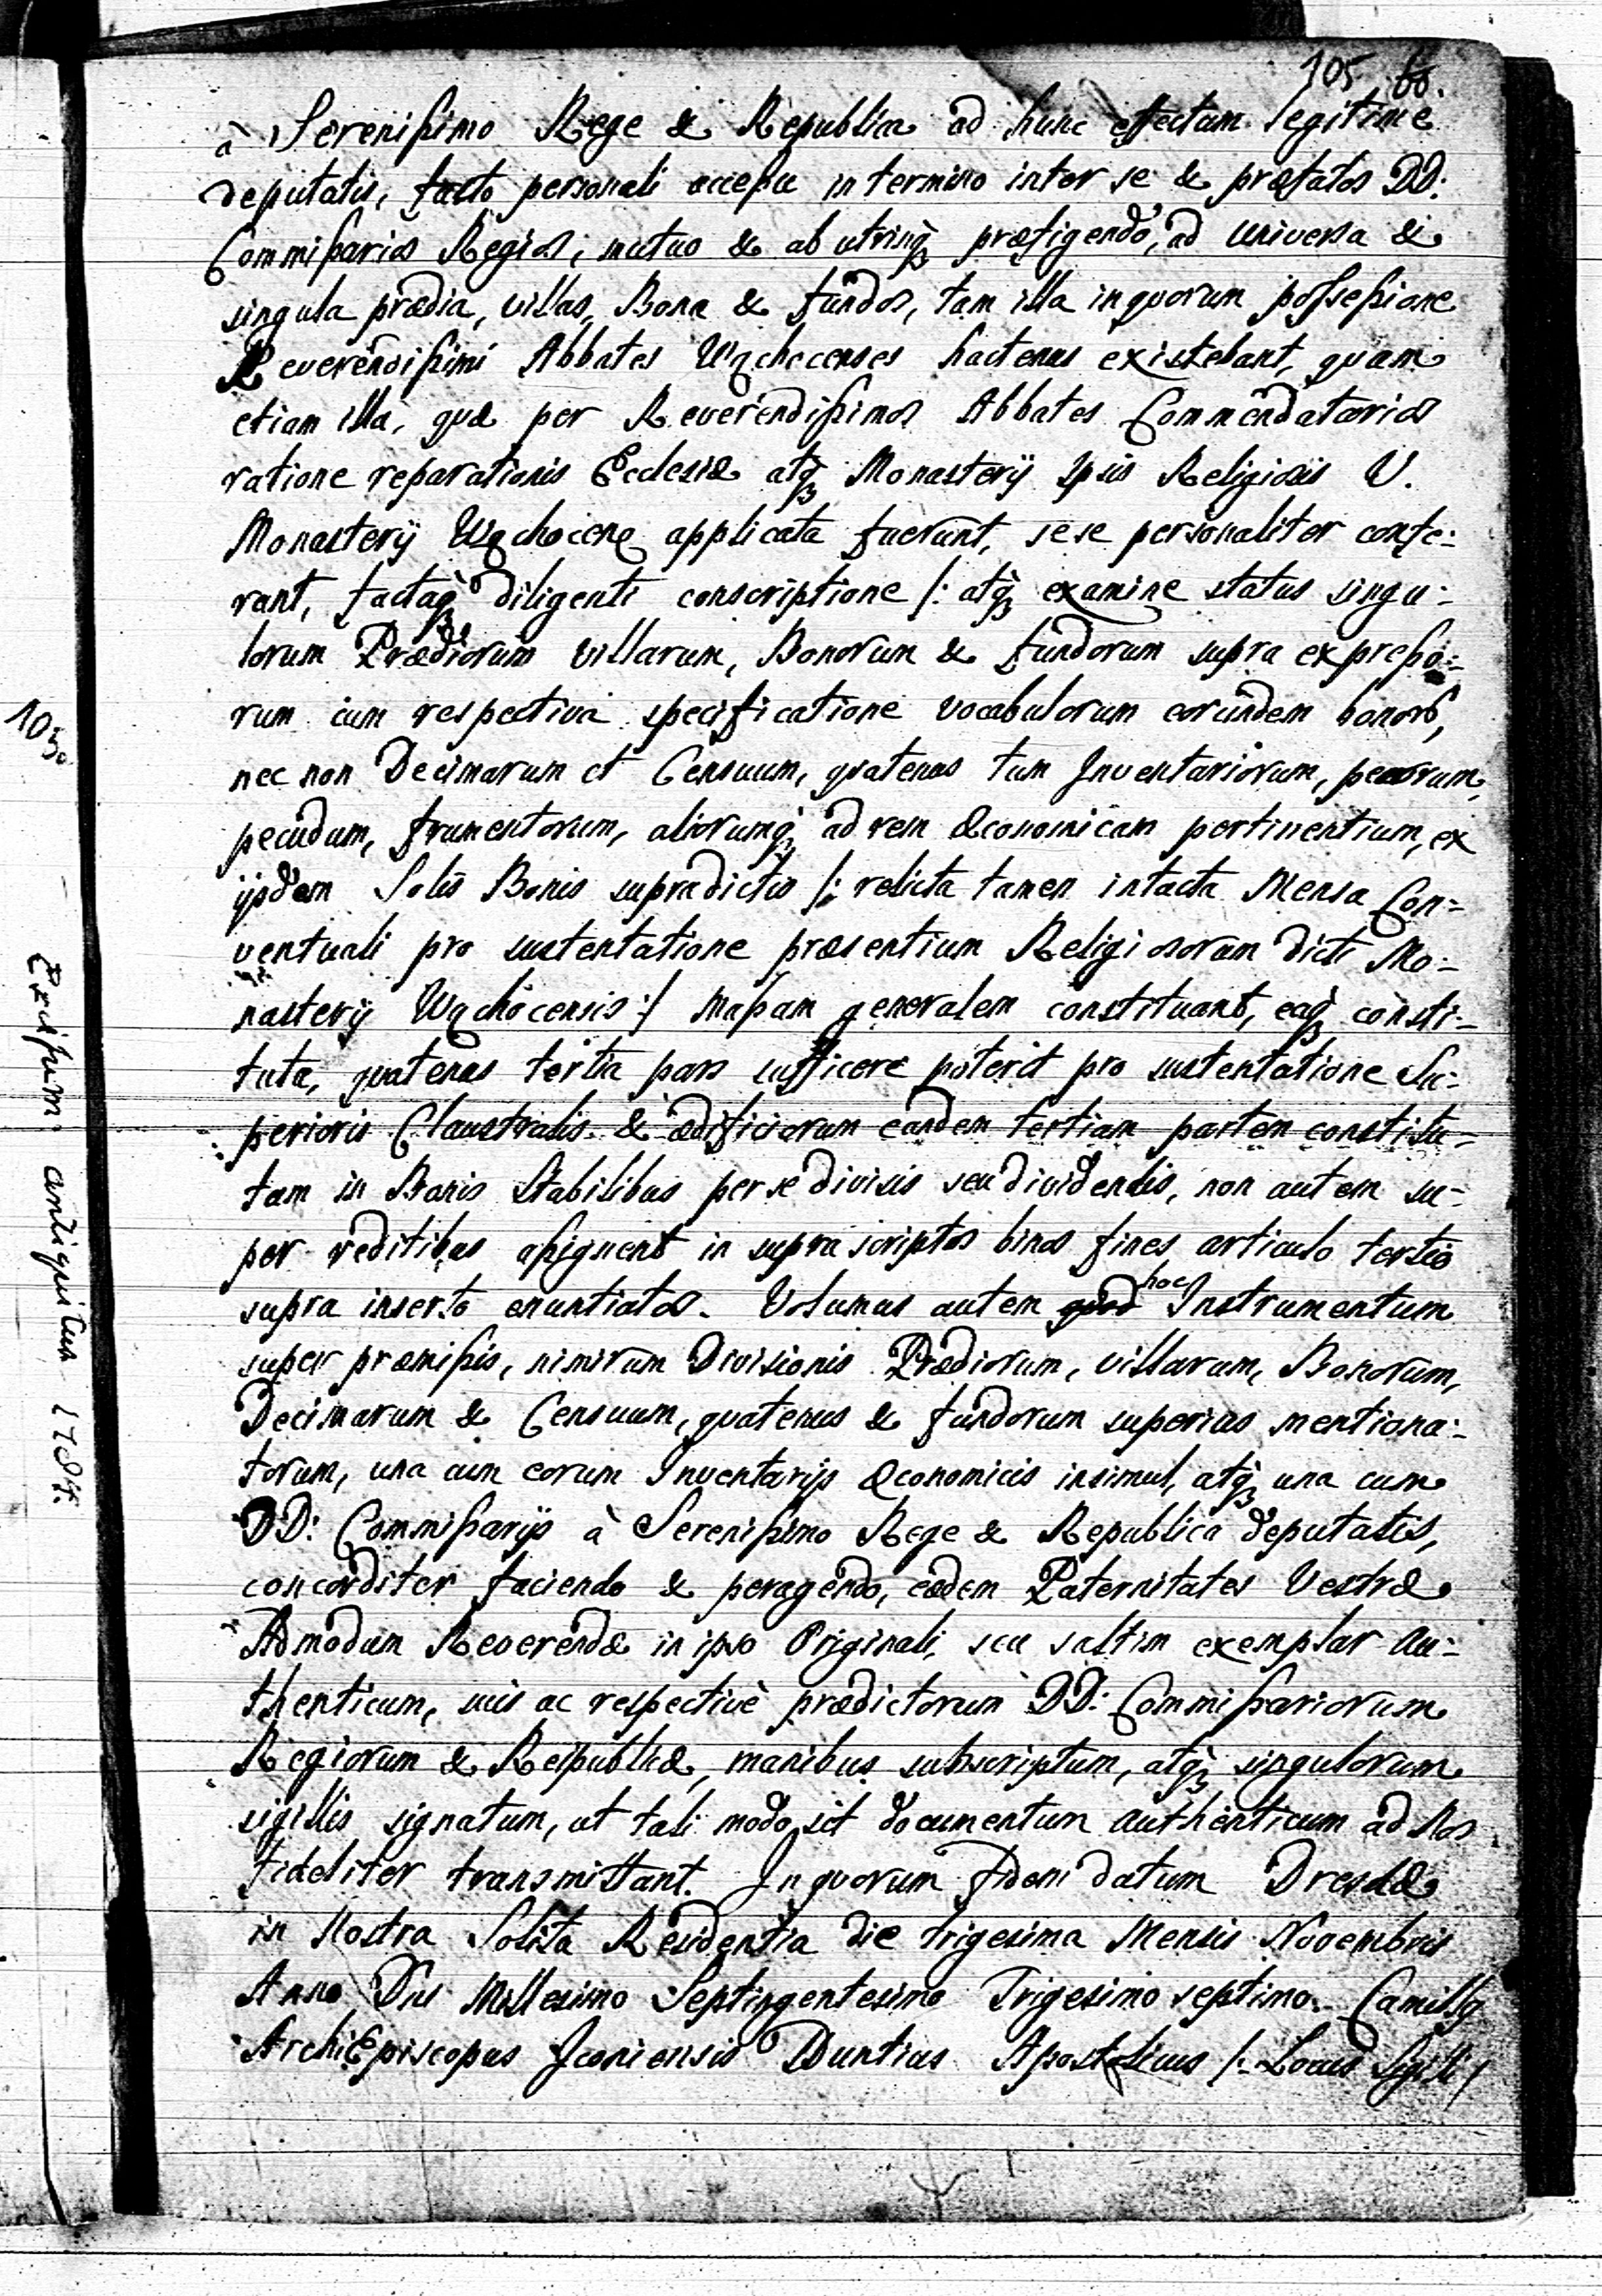 105 60.
à Serenißimo Rege & Republica ad hunc effectum legitime
deputatis, facto personali accessu in termino inter se & præfatos DD:
Commißarios Regios, mutuo & ab utrinq3 præfigendo, ad universa &
singula prædia, villas, Bona & fundos, tam illa in quorum possessione
Reverendißimi Abbates Wąchocenses hactenus existebant, quam
etiam illa, quæ per Reverendißimos Abbates Commendatarios
ratione reparationis Ecclesiæ atq3 Monasterij ipsis Religiosis V.
Monasterij Wąchocen applicata fuerunt, sese personaliter confe:
rant, factaq3 diligenti conscriptione /: atq3 examine status singu:
lorum Prædiorum villarum, Bonorum & fundorum supra expreßo:
rum cum respectiva specificatione vocabulorum eorundem bonorũ,
nec non Decimarum et Censuum, quatenus tum Inventariorum, pecorum,
pecudum, frumentorum, aliorumq3 ad rem œconomicam pertinentium, ex
ijsdem Solis Bonis supradictis /: relicta tamen intacta Mensa Con=
ventuali pro sustentatione præsentium Religiosorum dicti Mo:
nasterij Wąchocensis :/ Maßam generalem constituant, eaq3 consti:
tuta, quatenus tertia pars sufficere poterit pro sustentatione Su:
perioris Claustralis & ædificiorum eandem tertiam partem constitu=
tam in Bonis Stabilibus per se divisis seu dividendis, non autem su=
per reditibus aßignent in supra scriptos binos fines articulo tertio
supra inserto enuntiatos. Volumus autem quod hoc Instrumentum
super præmißis, nimirum Divisionis Prædiorum, villarum, Bonorum,
Decimarum & Censuum, quatenus & fundorum superius mentiona:
torum, una cum eorum Inventarijs œconomicis insimul, atq3 una cum
DD: Commißarijs à Serenißimo Rege & Republica deputatis,
concorditer faciendo & peragendo, eædem Paternitates Vestræ
Admodum Reverendæ in ipso Originali, seu saltim exemplar au=
thenticum, suis ac respectivè prædictorum DD: Commißariorum
Regiorum & Reipublicæ, manibus subscriptum, atq3 singulorum
sigillis signatum, ut tali modo sit documentum authenticum ad Nos
fideliter transmittant. In quorum fidem datum Dresdæ
in Nostra Solita Residentia die trigesima Mensis Novembris
Anno Dni Millesimo Septingentesimo Trigesimo septimo. Camillq
ArchiEpiscopus Iconiensis Nuntius Apostolicus /: Locus Sigilli /
1030
antiquitus